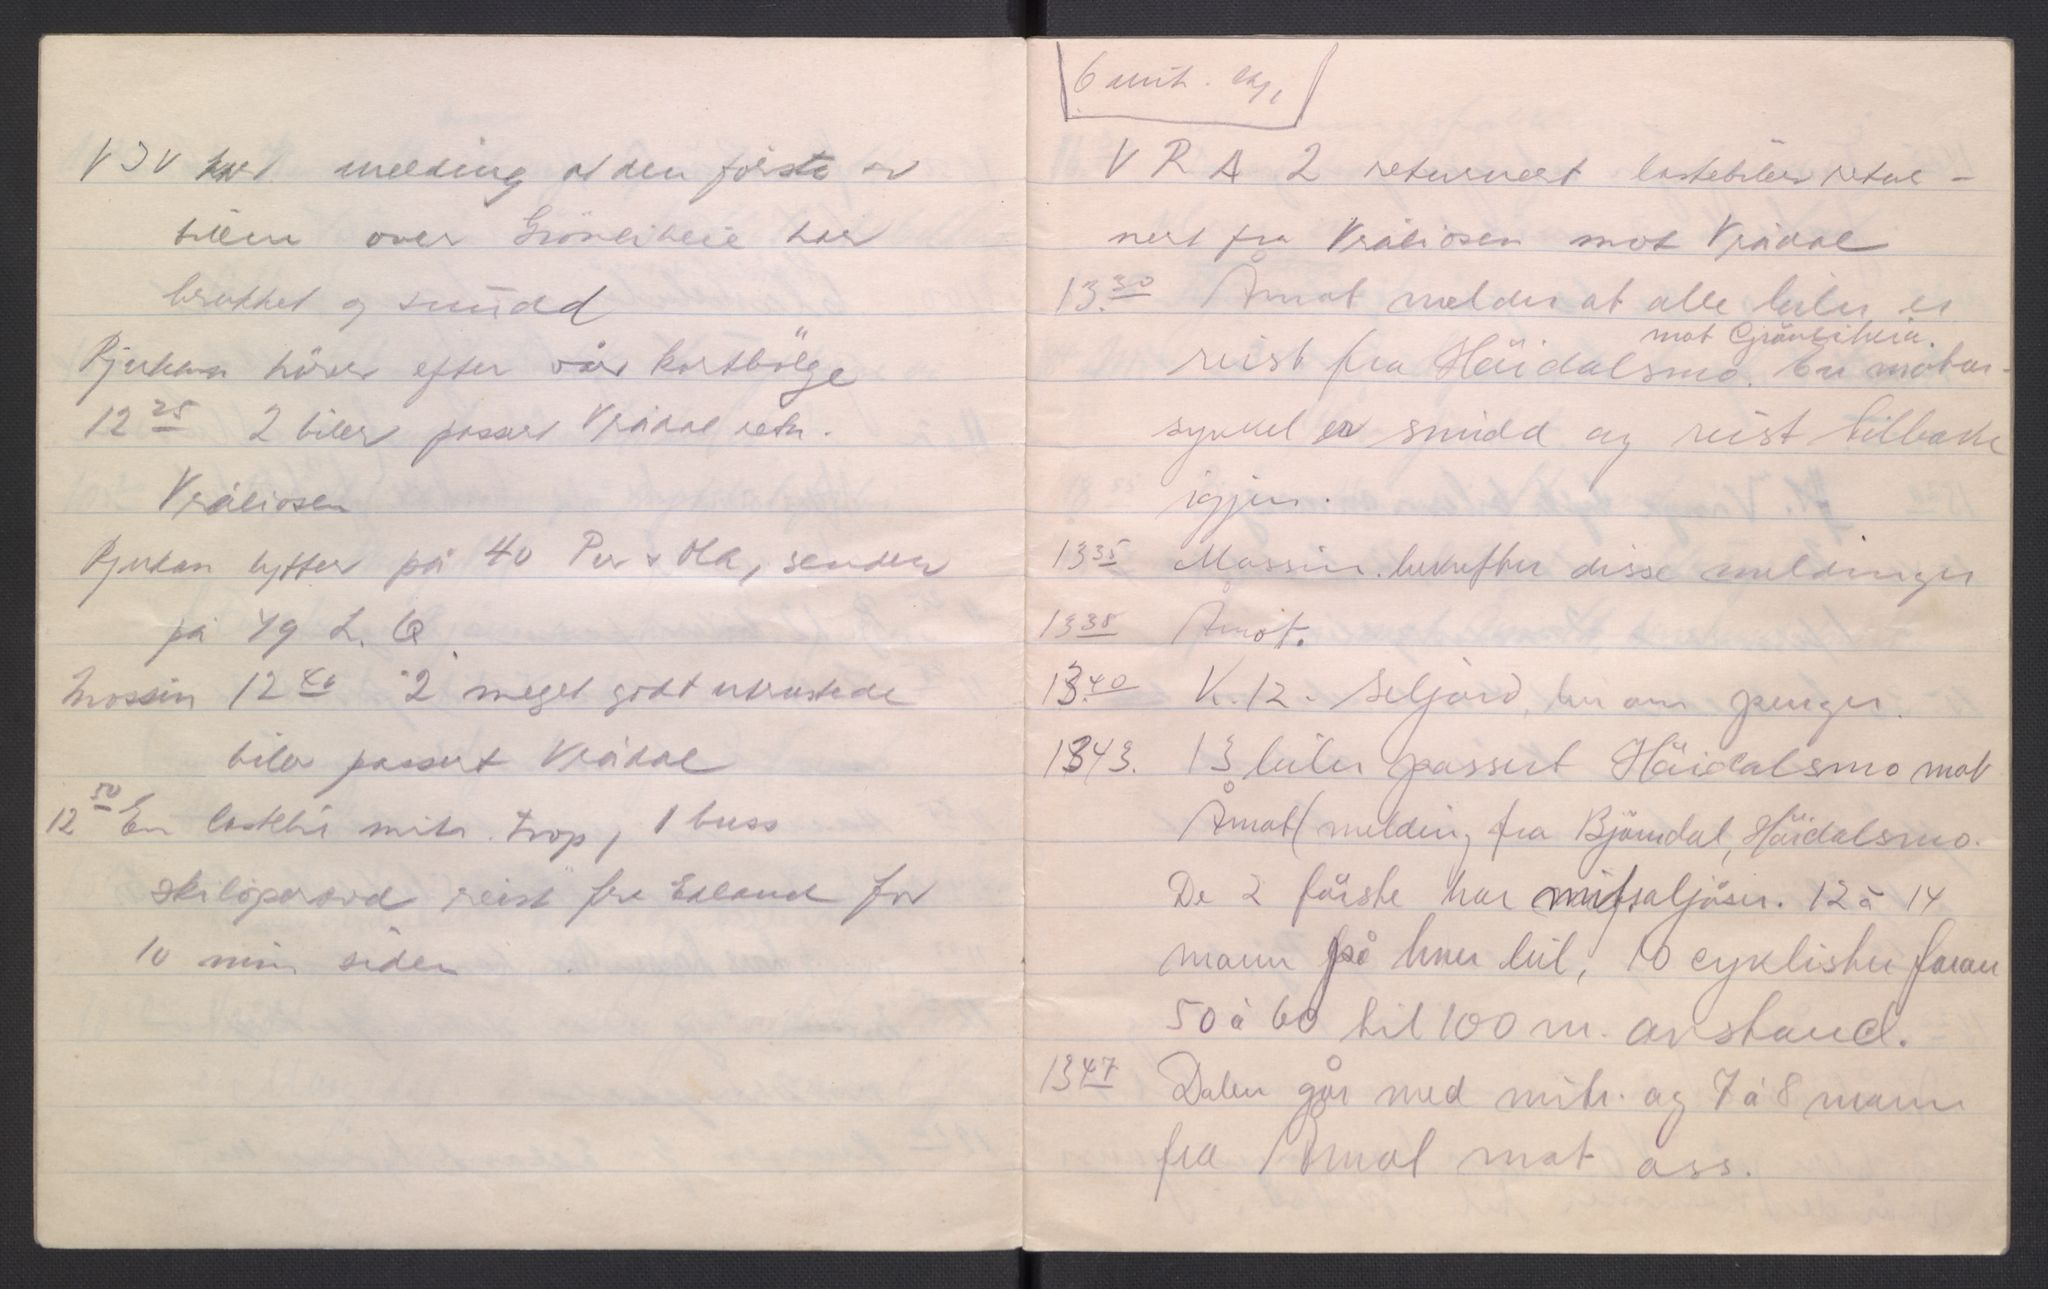 VJV har melding at den første av
bilene over Grönliheia har
brukket og snudd
Rjukan hører efter vår kortbølge
12 25 2 biler passert Vrådal retn.
Vråliosen
Rjukan lytter på 40 Per & Ola, sender
på 49 L. Q.
Mossin 12 40 2 meget godt utrustede
biler passert Vrådal
12 50 En lastebil mitr. trop, 1 buss
skiløparavd reist fra Edland for
10 min siden
6 mit.
V R A 2 returnert lastebiler retur-
nert fra Vråliosen mot Vrådal
13.30 Åmot melder at alle biler er
mot Grönliheia.
reist fra Höidalsmo. En motor-
sykkel er snudd og reist tilbake
igjen.
13 35 Mossin. bekrefter disse meldinger
13 38 Åmot.
13.40 K. 12. Seljord, ber om penger.
1343. 13 biler passert Höidalsmo mot
Åmot (melding fra Björndal, Höidalsmo.
De 2 förste har mitraljöser. 12 à 14
mann på hver bil, 10 cyklister foran
50 à 60 til 100 m. avstand.
13 47 Dalen går med mitr. og 7 à 8 mann
fra Åmot mot oss.